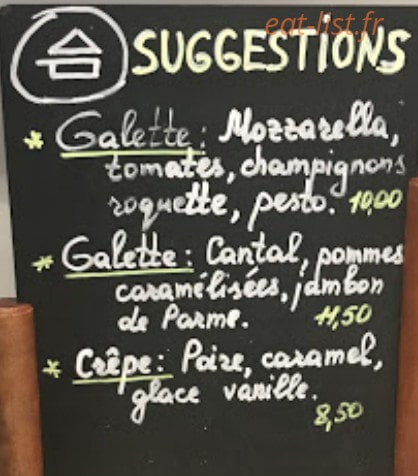 eat-list.fr
SUGGESTIONS
* Galette : Mozzarella,
tomates, champignons
roquette, pesto. 10,00
* Galette : Cantal, pommes
caramélisées, jambon
de Parme. 11,50
* Crêpe : Poire, caramel,
glace vanille.
8,50